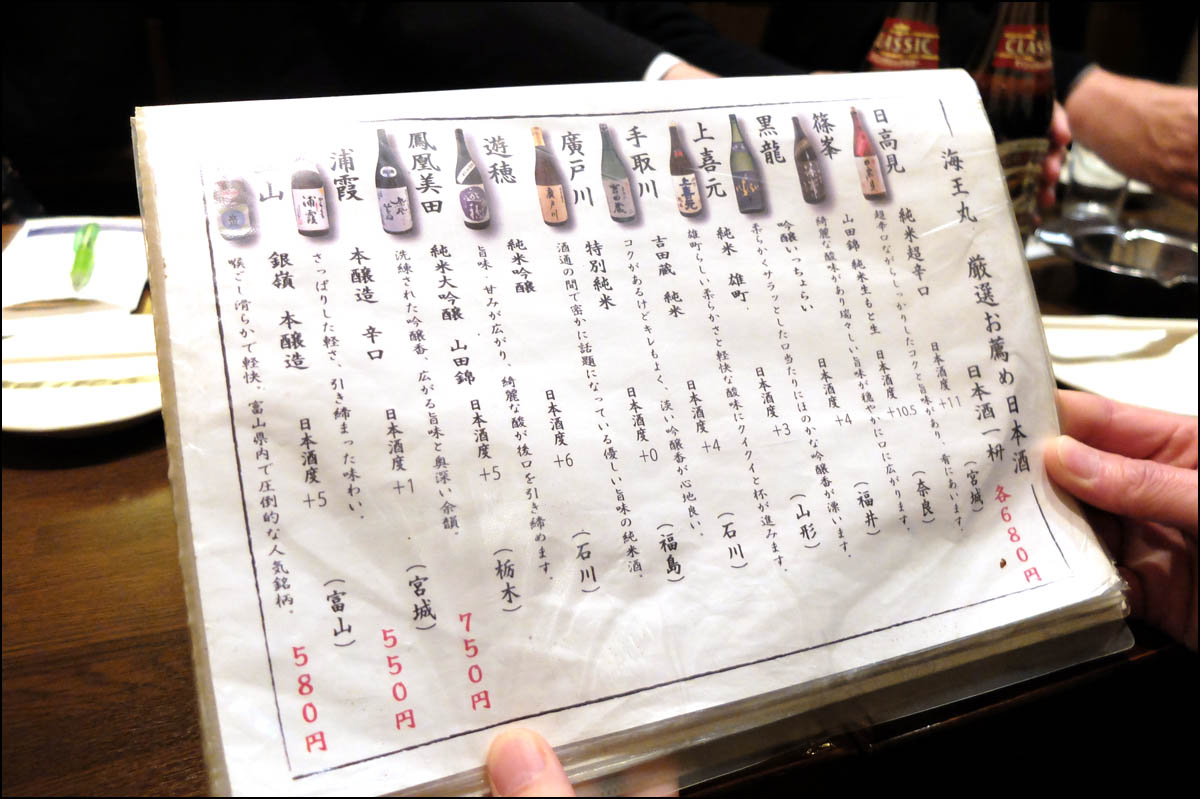 海王丸
厳選お薦め日本酒
日本酒一枡 各680円
日高見 純米超辛口 日本酒度+11 (宮城)
超辛口ながらしっかりしたコクと旨味があり、肴にあいます。
篠峯 山田錦 純米生もと生 日本酒度+10.5 (奈良)
綺麗な酸味があり瑞々しい旨味が穏やかに口に広がります。
黒龍 吟醸いっちょらい 日本酒度+4 (福井)
柔らかくサラッとした口当たりにほのかな吟醸香が漂います。
上喜元 純米 雄町 日本酒度+3 (山形)
雄町らしい柔らかさと軽快な酸味にクイクイと杯が進みます。
手取川 吉田蔵 純米 日本酒度+4 (石川)
コクがあるけどキレもよく、淡い吟醸香が心地良い。
廣戸川 特別純米 日本酒度+0 (福島)
酒通の間で密かに話題になっている優しい旨味の純米酒。
遊穂 純米吟醸 日本酒度+6 (石川)
旨味・甘みが広がり、綺麗な酸が後口を引き締めます。
鳳凰美田 純米大吟醸 山田錦 日本酒度+5 (栃木) 750円
洗練された吟醸香、広がる旨味と奥深い余韻。
浦霞 本醸造 辛口 日本酒度+1 (宮城) 550円
さっぱりした軽さ、引き締まった味わい。
山 銀嶺 本醸造 日本酒度+5 (富山) 580円
喉ごし滑らかで軽快。富山県内で圧倒的な人気銘柄。
CLASSIC
CLASSIC
浦霞
廣戸川